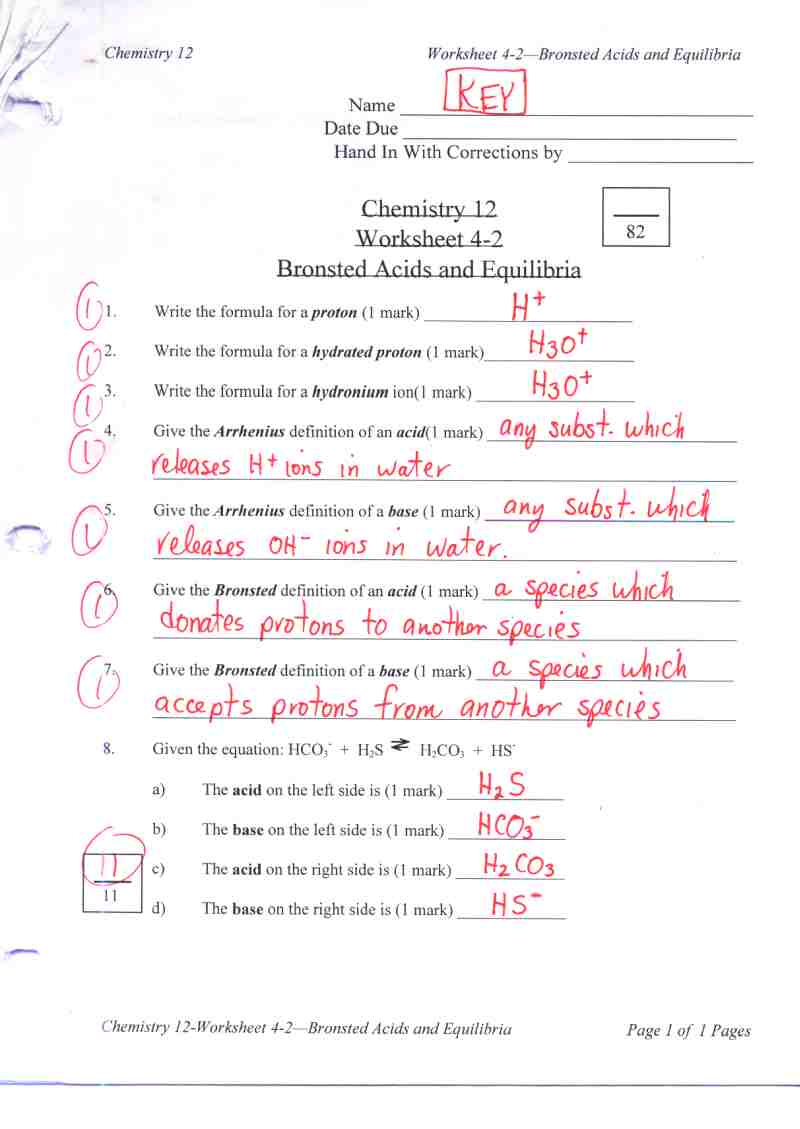 Chemistry 12 Worksheet 4-2—Bronsted Acids and Equilibria
Name KEY
Date Due
Hand In With Corrections by
Chemistry 12
Worksheet 4-2
82
Bronsted Acids and Equilibria
1 1. Write the formula for a proton (1 mark) H⁺
1 2. Write the formula for a hydrated proton (1 mark) H₃O⁺
1 3. Write the formula for a hydronium ion(1 mark) H₃O⁺
1 4. Give the Arrhenius definition of an acid(1 mark) any subst. which
releases H⁺ ions in water
1 5. Give the Arrhenius definition of a base (1 mark) any subst. which
releases OH⁻ ions in water.
1 6. Give the Bronsted definition of an acid (1 mark) a species which
donates protons to another species
1 7. Give the Bronsted definition of a base (1 mark) a species which
accepts protons from another species
8. Given the equation: HCO₃⁻ + H₂S ⇄ H₂CO₃ + HS⁻
a) The acid on the left side is (1 mark) H₂S
b) The base on the left side is (1 mark) HCO₃⁻
11 c) The acid on the right side is (1 mark) H₂CO₃
11
d) The base on the right side is (1 mark) HS⁻
Chemistry 12-Worksheet 4-2—Bronsted Acids and Equilibria Page 1 of 1 Pages